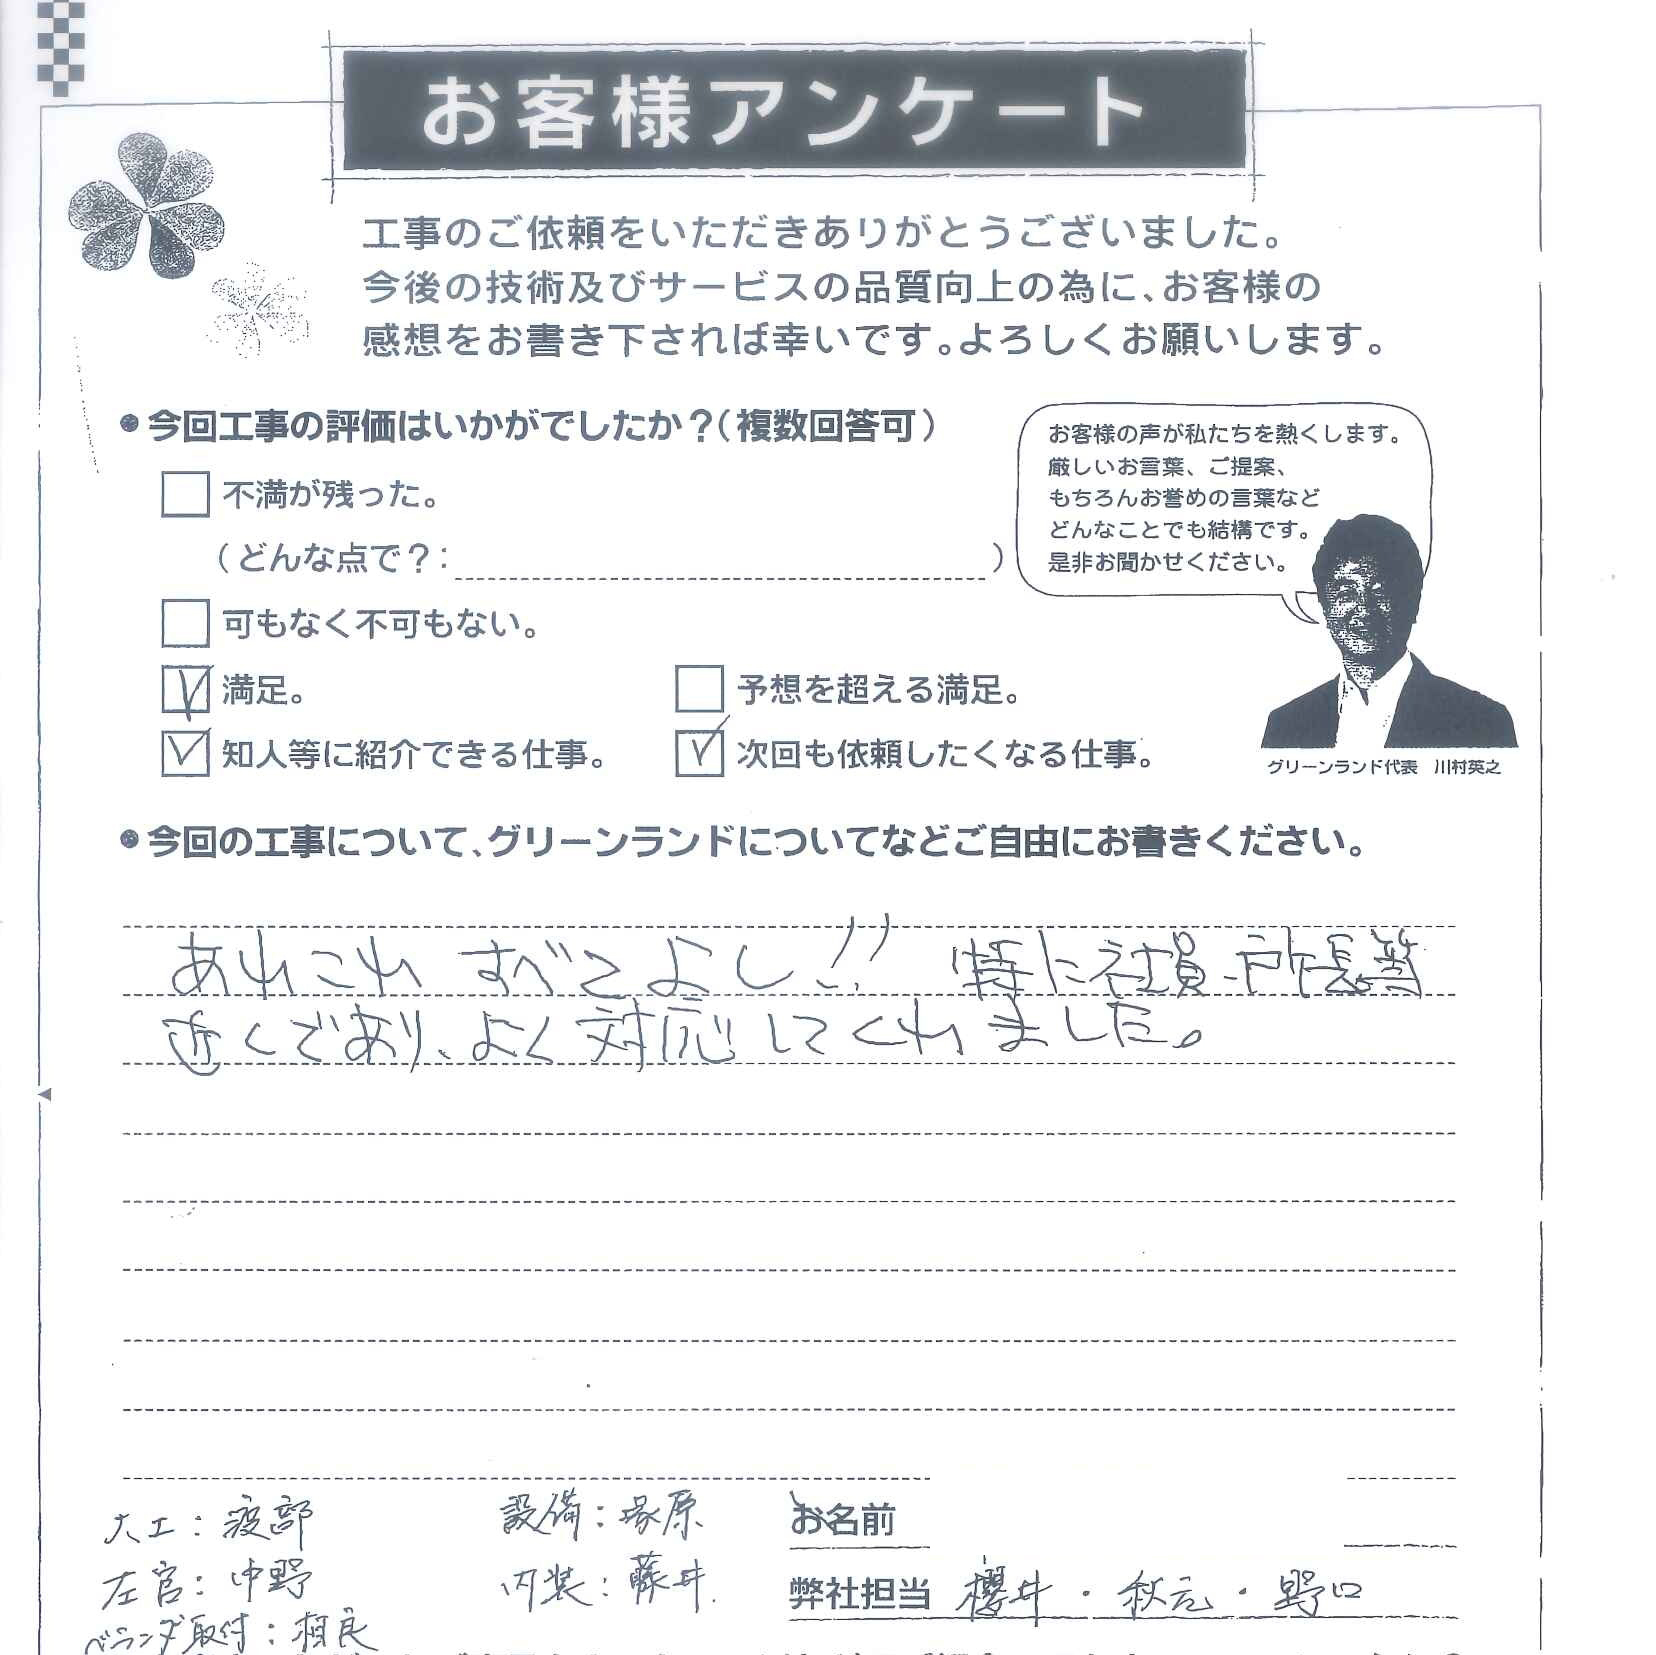 お客様アンケート
工事のご依頼をいただきありがとうございました。
今後の技術及びサービスの品質向上の為に、お客様の
感想をお書き下されれば幸いです。よろしくお願いします。
●今回工事の評価はいかがでしたか？（複数回答可）
不満が残った。
（どんな点で？：　）
可もなく不可もない。
満足。
予想を超える満足。
知人等に紹介できる仕事。
次回も依頼したくなる仕事。
お客様の声が私たちを熱くします。
厳しいお言葉、ご提案、
もちろんお誉めの言葉など
どんなことでも結構です。
是非お聞かせください。
グリーンランド代表　川村英之
●今回の工事について、グリーンランドについてなどご自由にお書きください。
あれこれ すべてよし!! 特に社員、所長等
近くであり、よく対応してくれました。
大工：渡部
設備：塚原
お名前
左官：中野
内装：藤井
弊社担当 櫻井・秋元・野口
ベランダ取付：相良